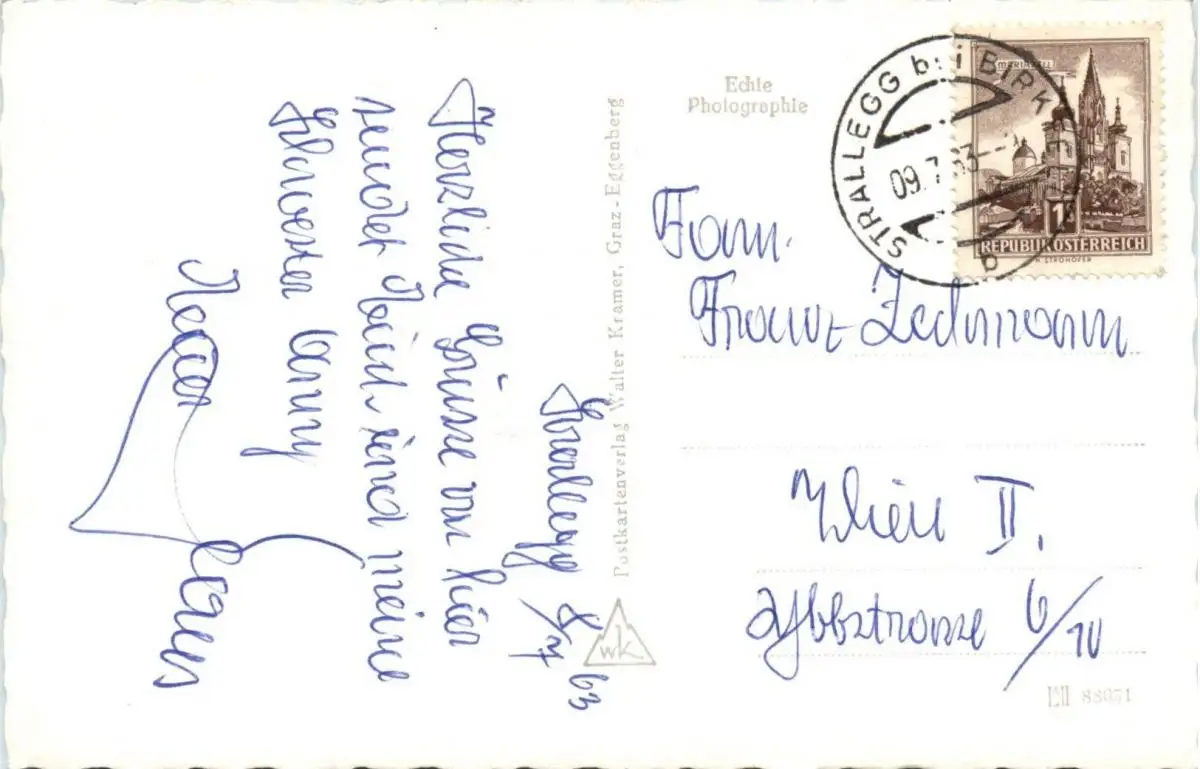 Strallegg 8/7 63
Herzliche Grüsse von hier
sendet Dich und meine
Schwester Anny
Echte
Photographie
Postkartenverlag Walter Kramer, Graz-Eggenberg
wk
STRALLEGG bei BIRKF
09.7.63
a
MARIAZELL
1S
REPUBLIK ÖSTERREICH
H. STROHOFER
Fam.
Franz Zechmann
Wien II.
Ybbsstrasse 6/10
88071